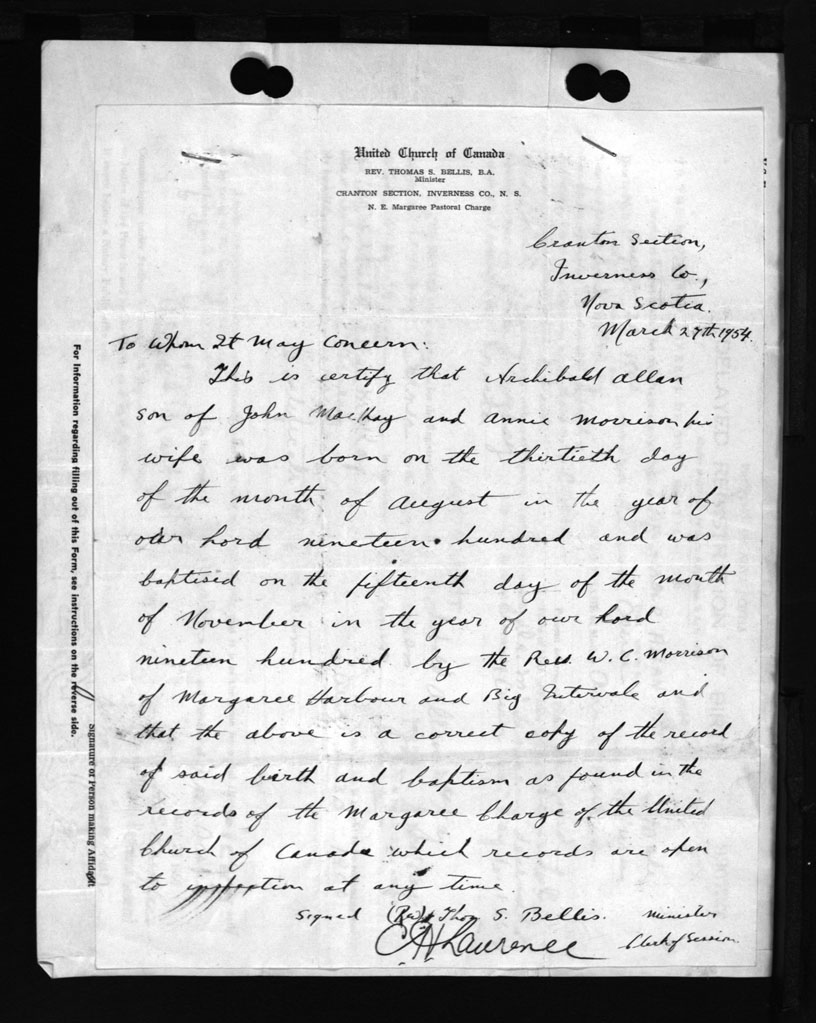 United Church of Canada
REV. THOMAS S. BELLIS, B.A.
Minister
CRANTON SECTION, INVERNESS CO., N. S.
N. E. Margaree Pastoral Charge
Cranton Section,
Inverness Co.,
Nova Scotia.
March 27th 1954.
To Whom It May Concern:
This is certify that Archibald Allan
son of John MacKay and Annie Morrison his
wife was born on the thirtieth day
of the month of August in the year of
our Lord nineteen hundred and was
baptised on the fifteenth day of the month
of November in the year of our Lord
nineteen hundred by the Rev. W. C. Morrison
of Margaree Harbour and Big Intervale and
that the above is a correct copy of the record
of said birth and baptism as found in the
records of the Margaree Charge of the United
Church of Canada which records are open
to inspection at any time.
Signed (Rev) Thos S. Bellis. Minister
Lawrence Clerk of Session.
For Information regarding filling out of this Form, see instructions on the reverse side.
Signature of Person making Affidavit